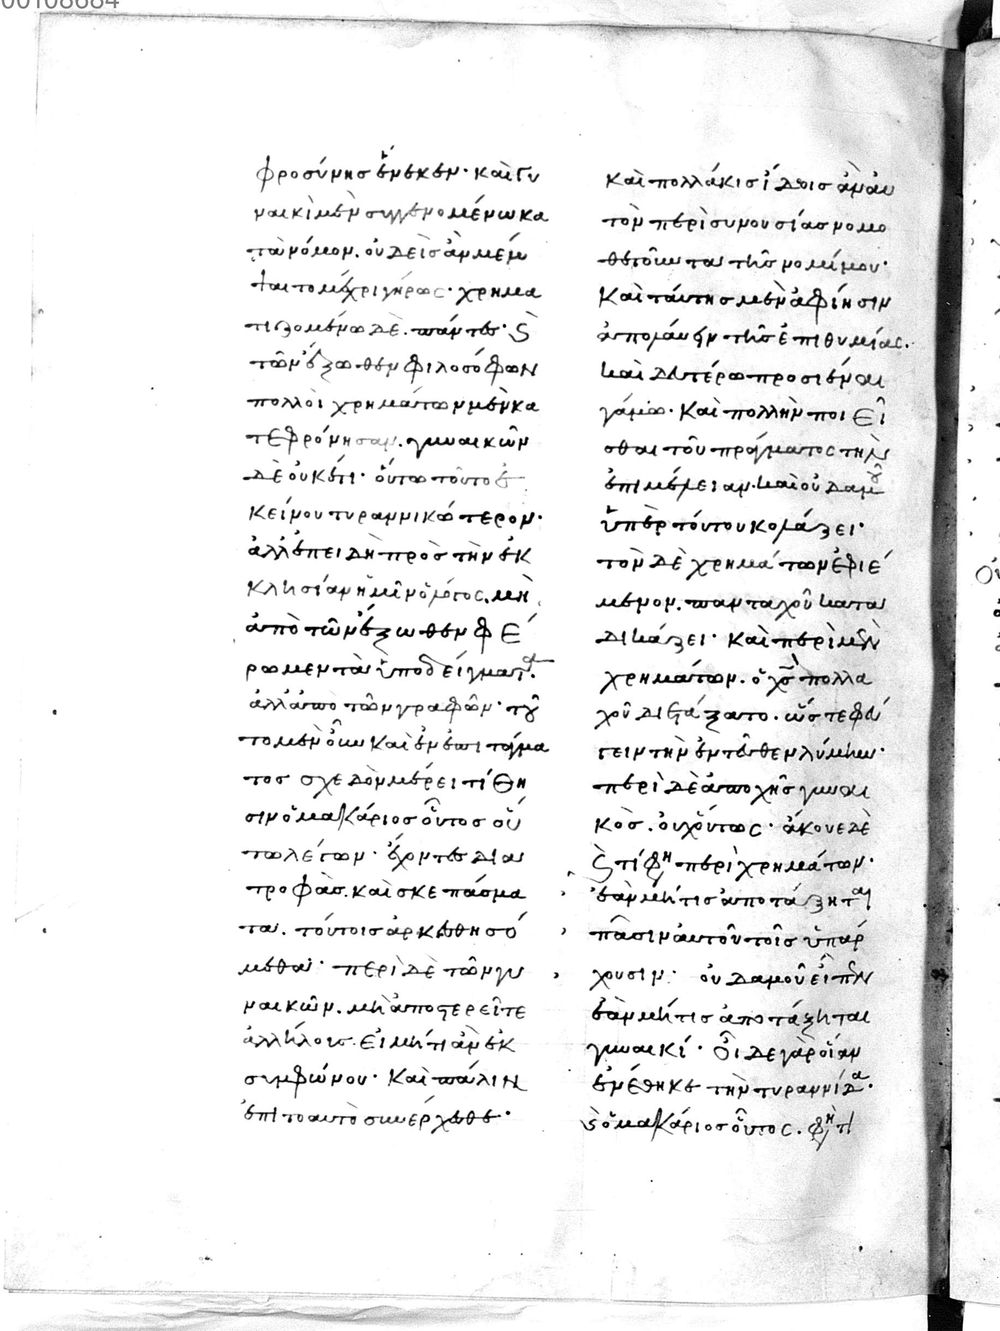 00108684
φροσύνησ ἕνεκεν· καὶ γυ
ναικὶ μὲν συγγενομένω κα
τὰ νόμον. οὐδεὶσ ἀν μέμ
ψαιτο μέχρι γήρωσ· χρημα
τιζομένω δὲ. πάντεσ· ϛ̀
τῶν ἔξωθεν φιλοσόφων
πολλοὶ χρημάτων μὲν κα
τεφρόνησαν. γυναικῶν
δὲ οὐκέτι· οὕτω τοῦτο ἐ
κείνου τυραννικώτερον·
ἀλλ' ἐπειδὴ πρὸσ τὴν ἐκ
κλησίαν ἡμῖν ὁ λόγοσ. μὴ
ἀπὸ τῶν ἔξωθεν φέ
ρωμεν τὰ ὑποδείγματα.
ἀλλ' ἀπὸ τῶν γραφῶν· τοῦ
το μὲν οὖν καὶ ἐν ἐπιτάγμα
τοσ σχεδὸν μέρει τίθη
σιν ὁ μακάριοσ οὗτοσ οὕ
τω λέγων· ἔχοντεσ δια
τροφὰσ. καὶ σκεπάσμα
τα. τούτοισ ἀρκεσθησό
μεθα· περὶ δὲ τῶν γυ
ναικῶν. μὴ ἀποστερεῖτε
ἀλλήλουσ. εἰ μήτι ἀν ἐκ
συμφώνου· καὶ πάλιν
ἐπιτοαυτὸ συνέρχεσθε·
καὶ πολλάκισ ἴδοισ ἀν αυ
τὸν περὶ συνουσίασ νομο
θετοῦντα τῆσ νομίμου·
καὶ ταύτησ μὲν ἀφίησιν
ἀπολαύειν τῆσ ἐπιθυμίασ.
καὶ δευτέρω προσιέναι
γάμω· καὶ πολλὴν ποιεῖ
σθαι τοῦ πράγματοσ τὴν
ἐπιμέλειαν. καὶ οὐδαμοῦ
ὑπὲρ τούτου κολάζει·
τὸν δὲ χρημάτων ἐφιέ
μενον. πανταχοῦ κατα
δικάζει· καὶ περὶ μὲν
χρημάτων. ὁ χσ̅ πολλα
χοῦ διετάξατο. ὥστε φεύ
γειν τὴν ἐντεῦθεν λύμην·
περὶ δὲ ἀποχῆσ γυναι
κὸσ. οὐχ οὕτωσ· ἄκουε δὲ
ϛ̀ τί φη περὶ χρημάτων·
ἐὰν μήτισ ἀποτάξηται
πᾶσιν αὐτοῦ τοῖσ ὑπάρ
χουσιν· οὐδαμοῦ εἰπὼν
ἐὰν μήτισ ἀποτάξηται
γυναικί· οἶδε γὰρ οἵαν
ἐνέθηκε τὴν τυραννίδα·
ϛ̀ ὁ μακάριοσ οὗτοσ. φητὶ